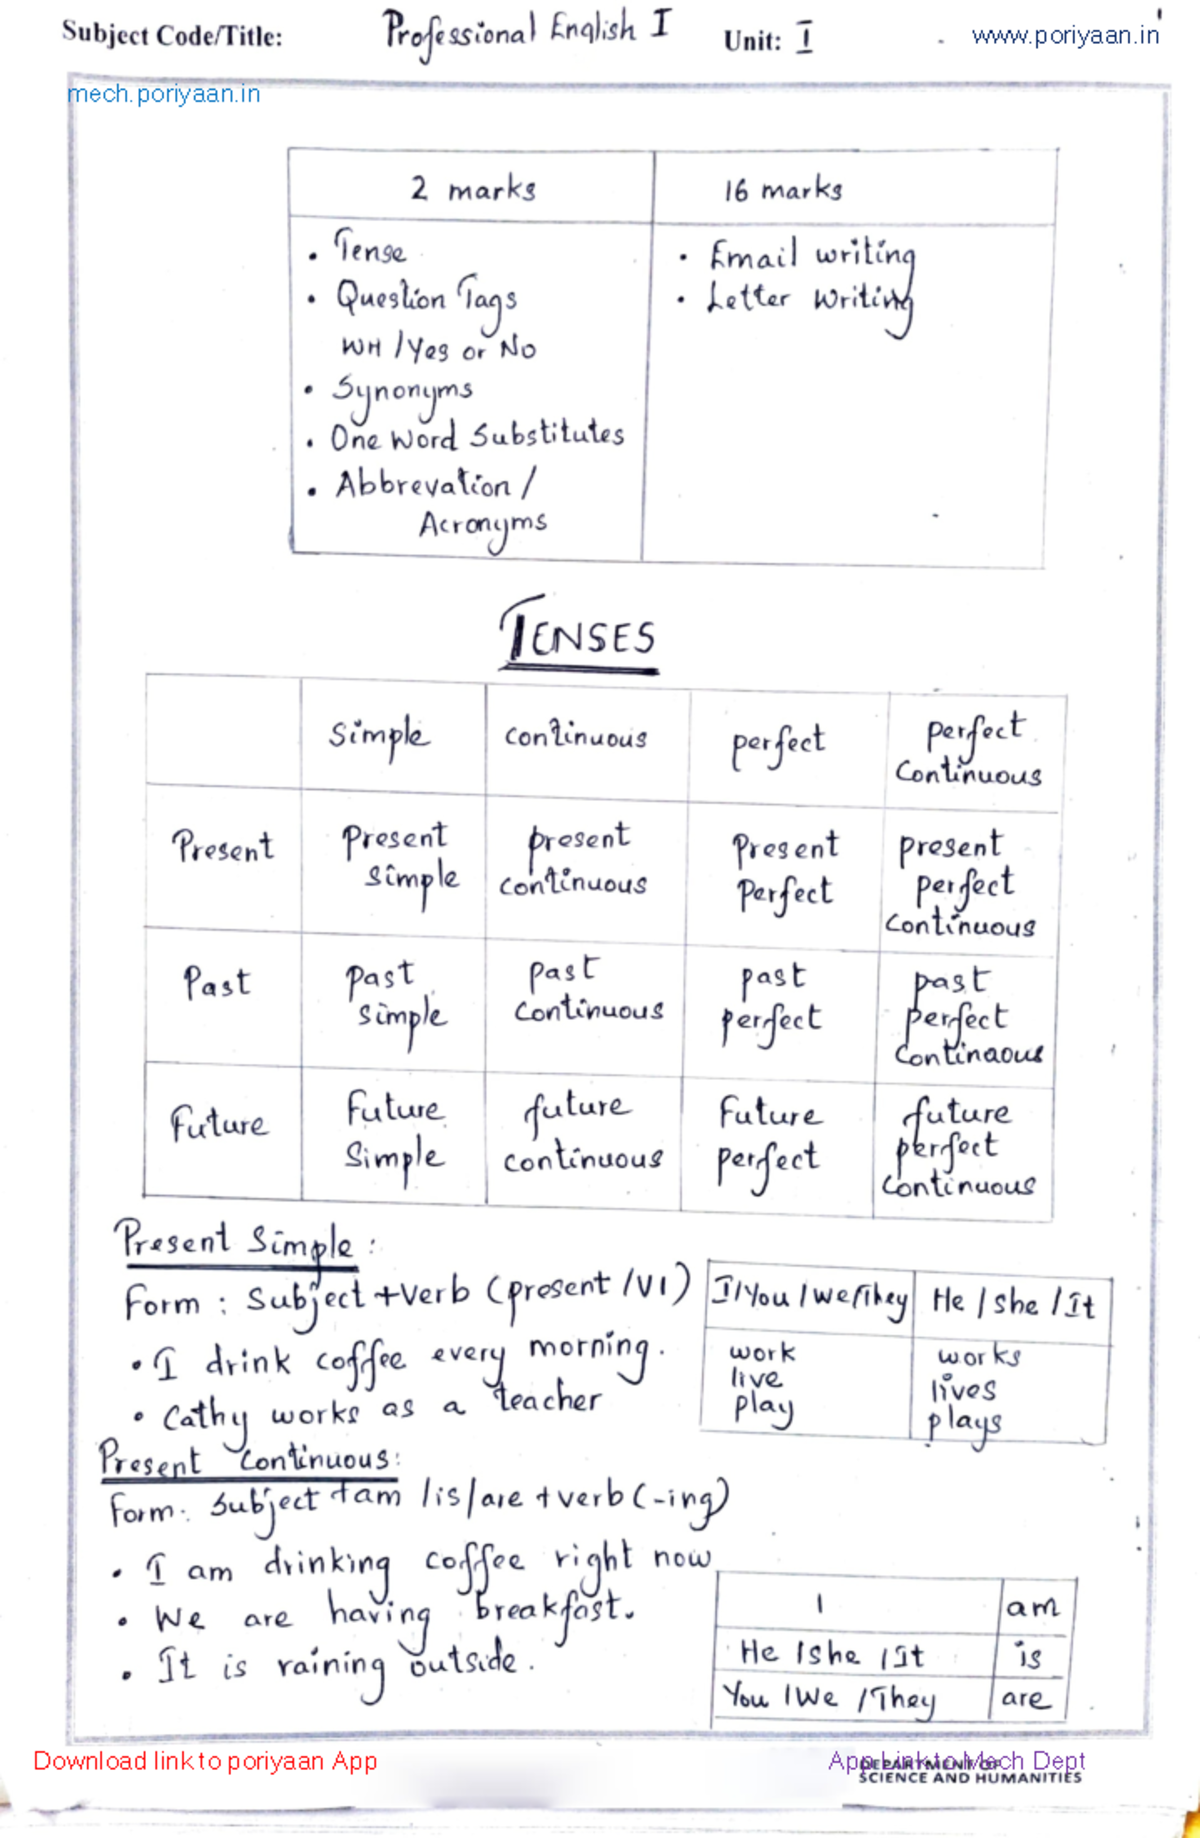 Subject Code/Title: Professional English I Unit: I www.poriyaan.in
mech.poriyaan.in
2 marks 16 marks
• Tense • Email writing
• Question Tags • Letter Writing
WH /Yes or No
• Synonyms
• One Word Substitutes
• Abbrevation /
Acronyms
TENSES
Simple continuous perfect perfect
Continuous
Present Present simple present continuous Present Perfect present perfect continuous
Past past simple past continuous past perfect past perfect continaous
Future Future Simple future continuous Future perfect future perfect continuous
Present Simple :
Form : Subject +verb (present /V1)
• I drink coffee every morning.
• Cathy works as a teacher
I/You /we/They He /she /It
work works
live lives
play plays
Present Continuous:
Form: Subject +am /is/are +verb (-ing)
• I am drinking coffee right now
• We are having breakfast.
• It is raining outside.
I am
He /she /It is
You /We /They are
Download link to poriyaan App
App Link to Mech Dept
DEPARTMENT OF
SCIENCE AND HUMANITIES